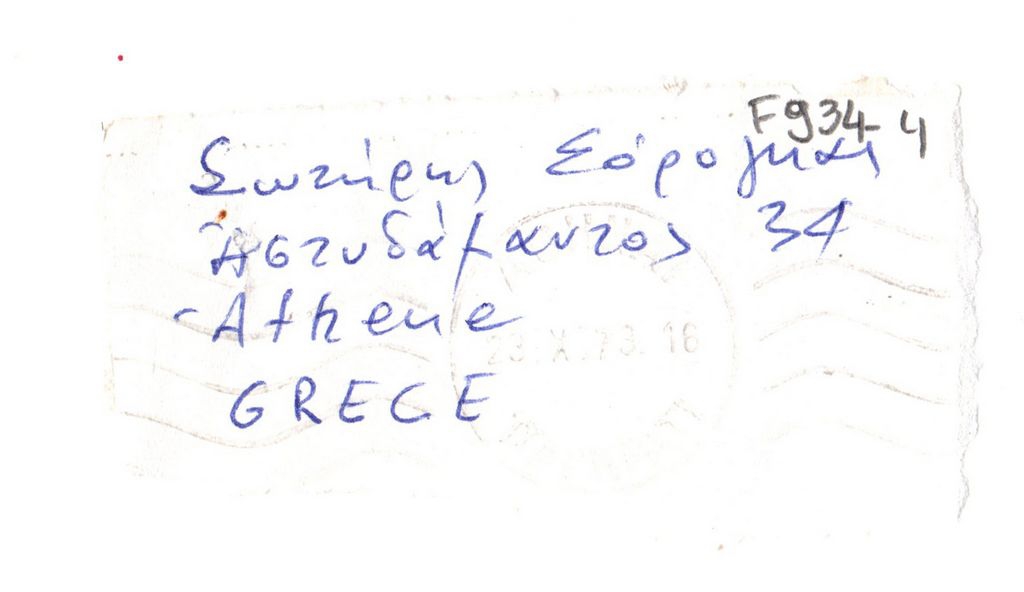 F934-4
Σωτήρης
Ἀστυδάμαντος 34
Athene
GRECE
23.X.73.16